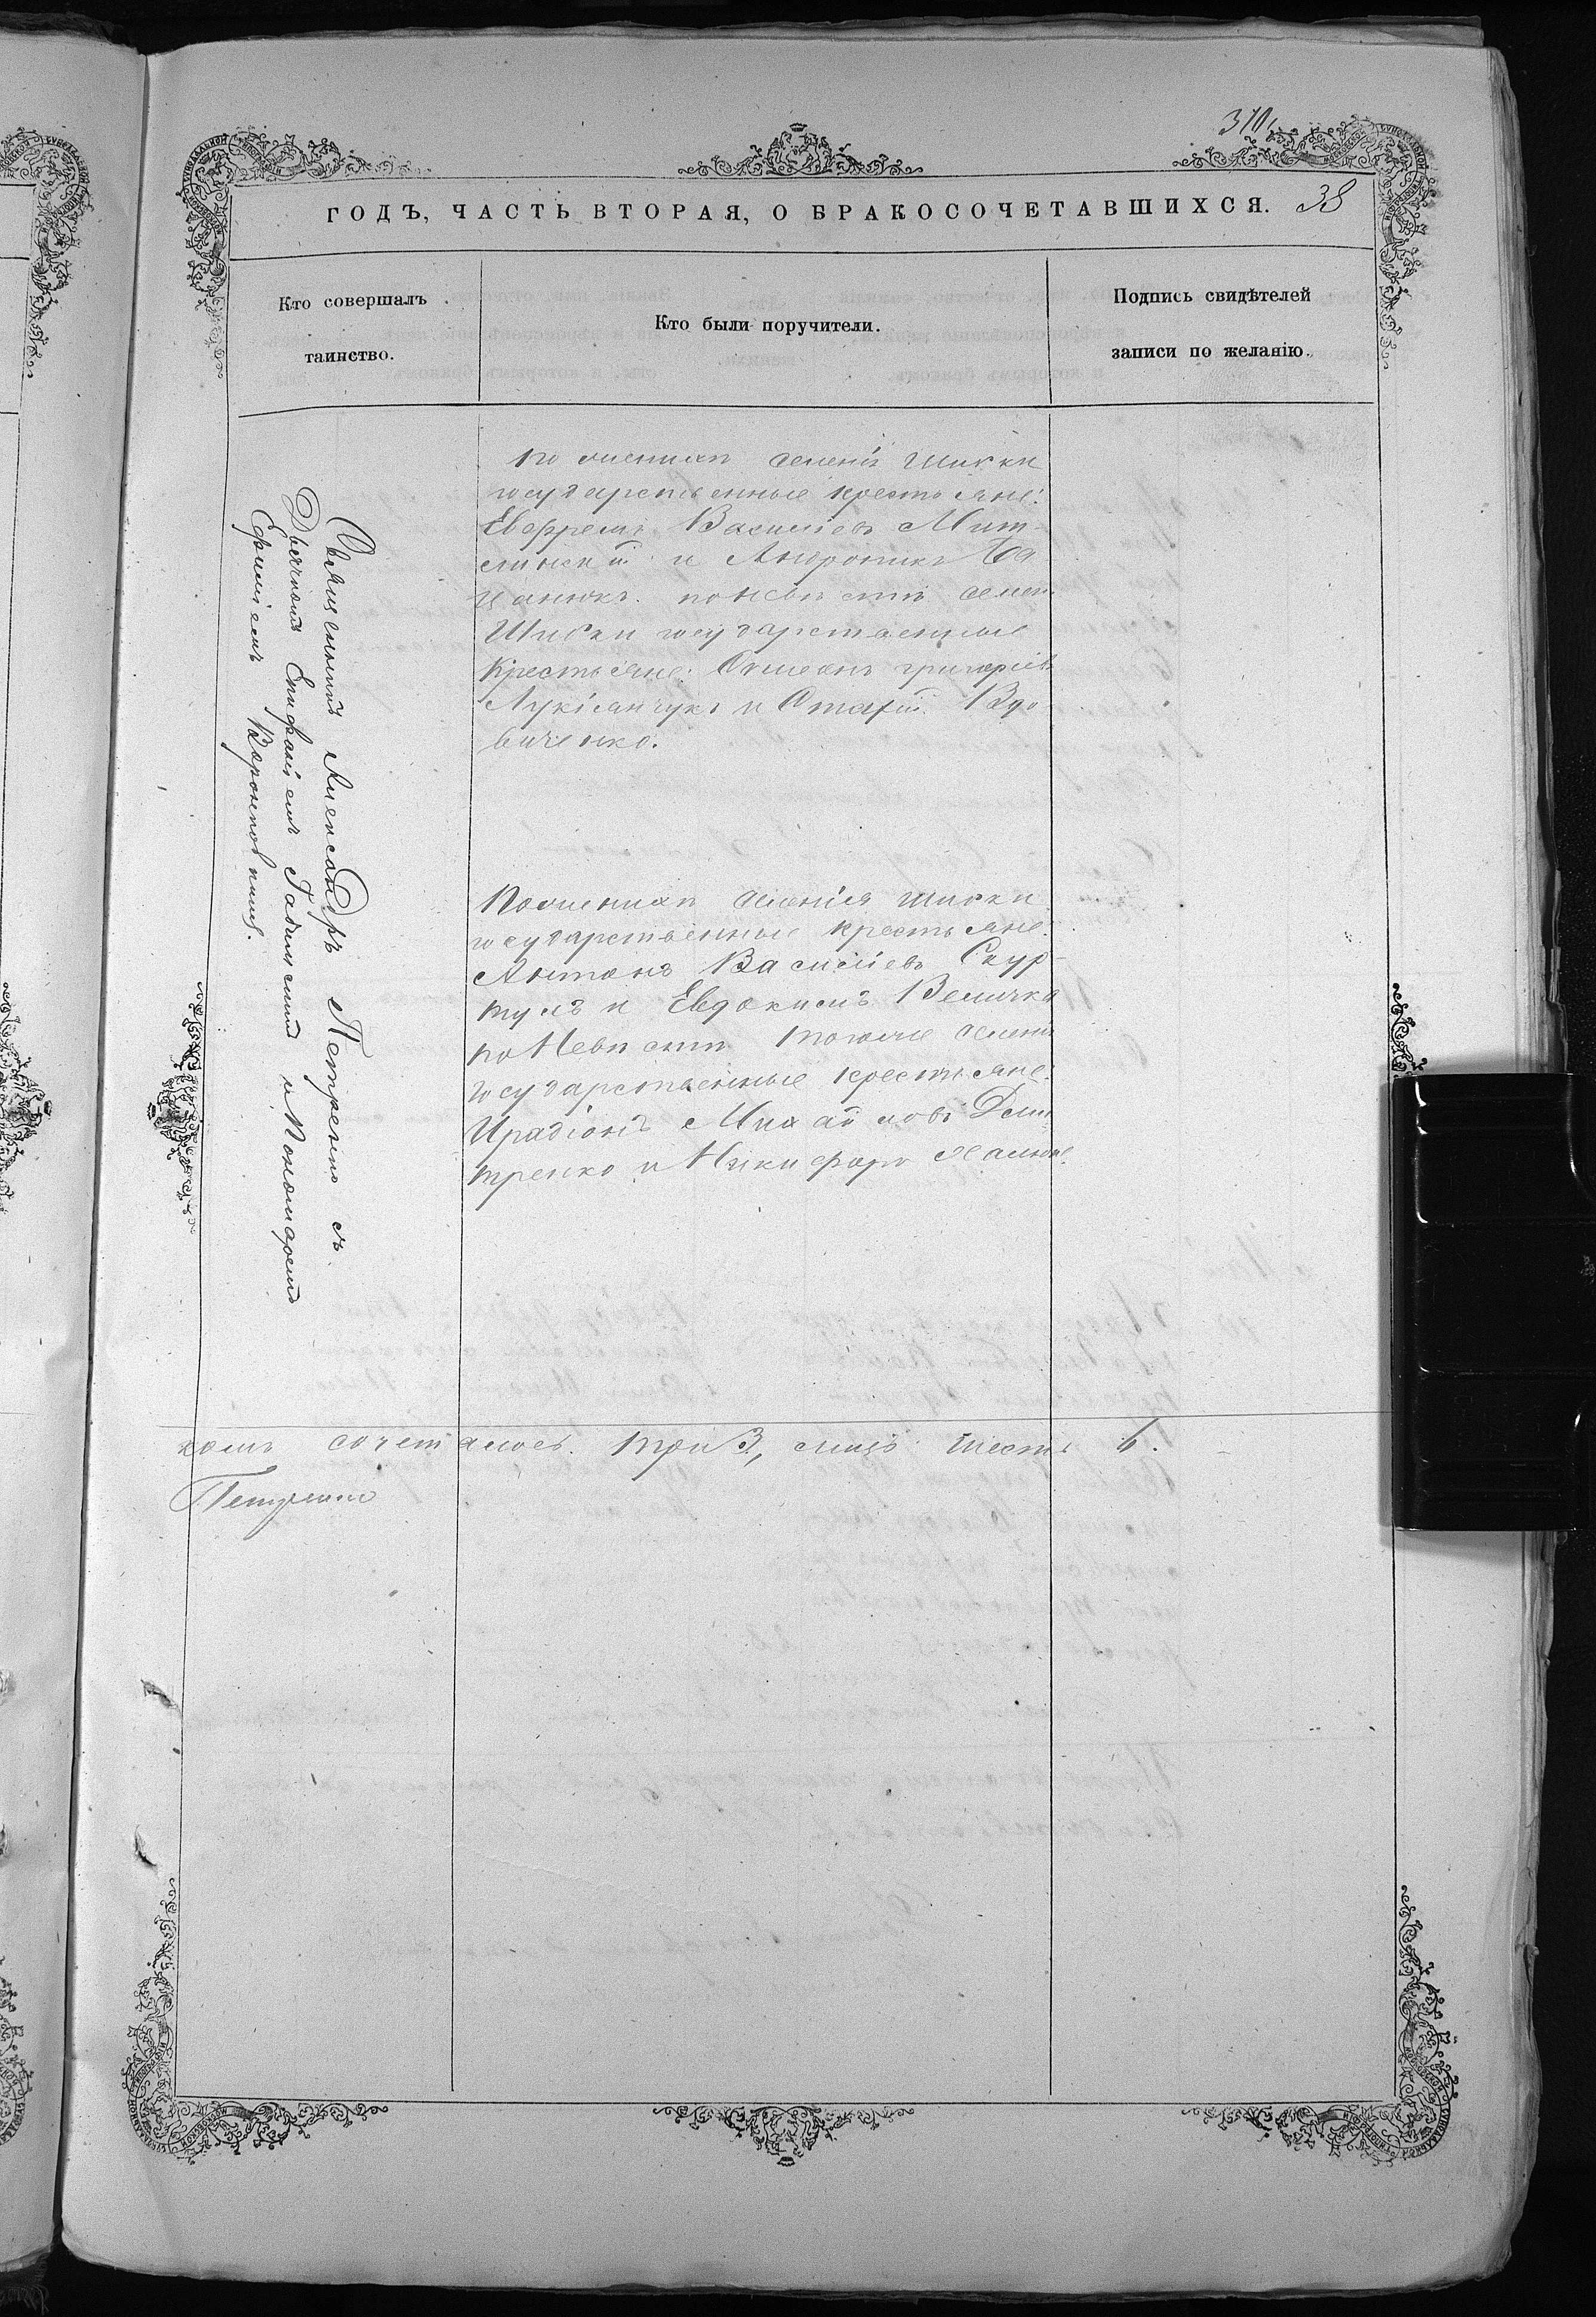 310.
ГОДЪ, ЧАСТЬ ВТОРАЯ, О БРАКОСОЧЕТАВШИХСЯ. 38
Кто совершалъ
таинство.
Кто были поручители.
Подпись свидѣтелей
записи по желанію.
Священникъ Александръ Петренко съ
Дьячкомъ Епифаніемъ и Пономаремъ
Ефиміемъ
по женихѣ селенія Шибки
государственные крестьяне:
Евфремъ Василіевъ Мит-
и Андроникъ
по невѣстѣ селен
Шибки государственные
крестьяне: Стефанъ Григоріев
Лукіанчукъ и Вдо
виченко.
По женихѣ селенія Шибки
государственные крестьяне:
Антонъ Василіевъ Скур-
тулъ и Евдокимъ Величко
по Невѣстѣ того же селенія
государственные крестьяне:
Иродіонъ Михайловъ Дми
тренко и Никифоръ
сочеталось три 3, лицъ шесть 6.
Петренко